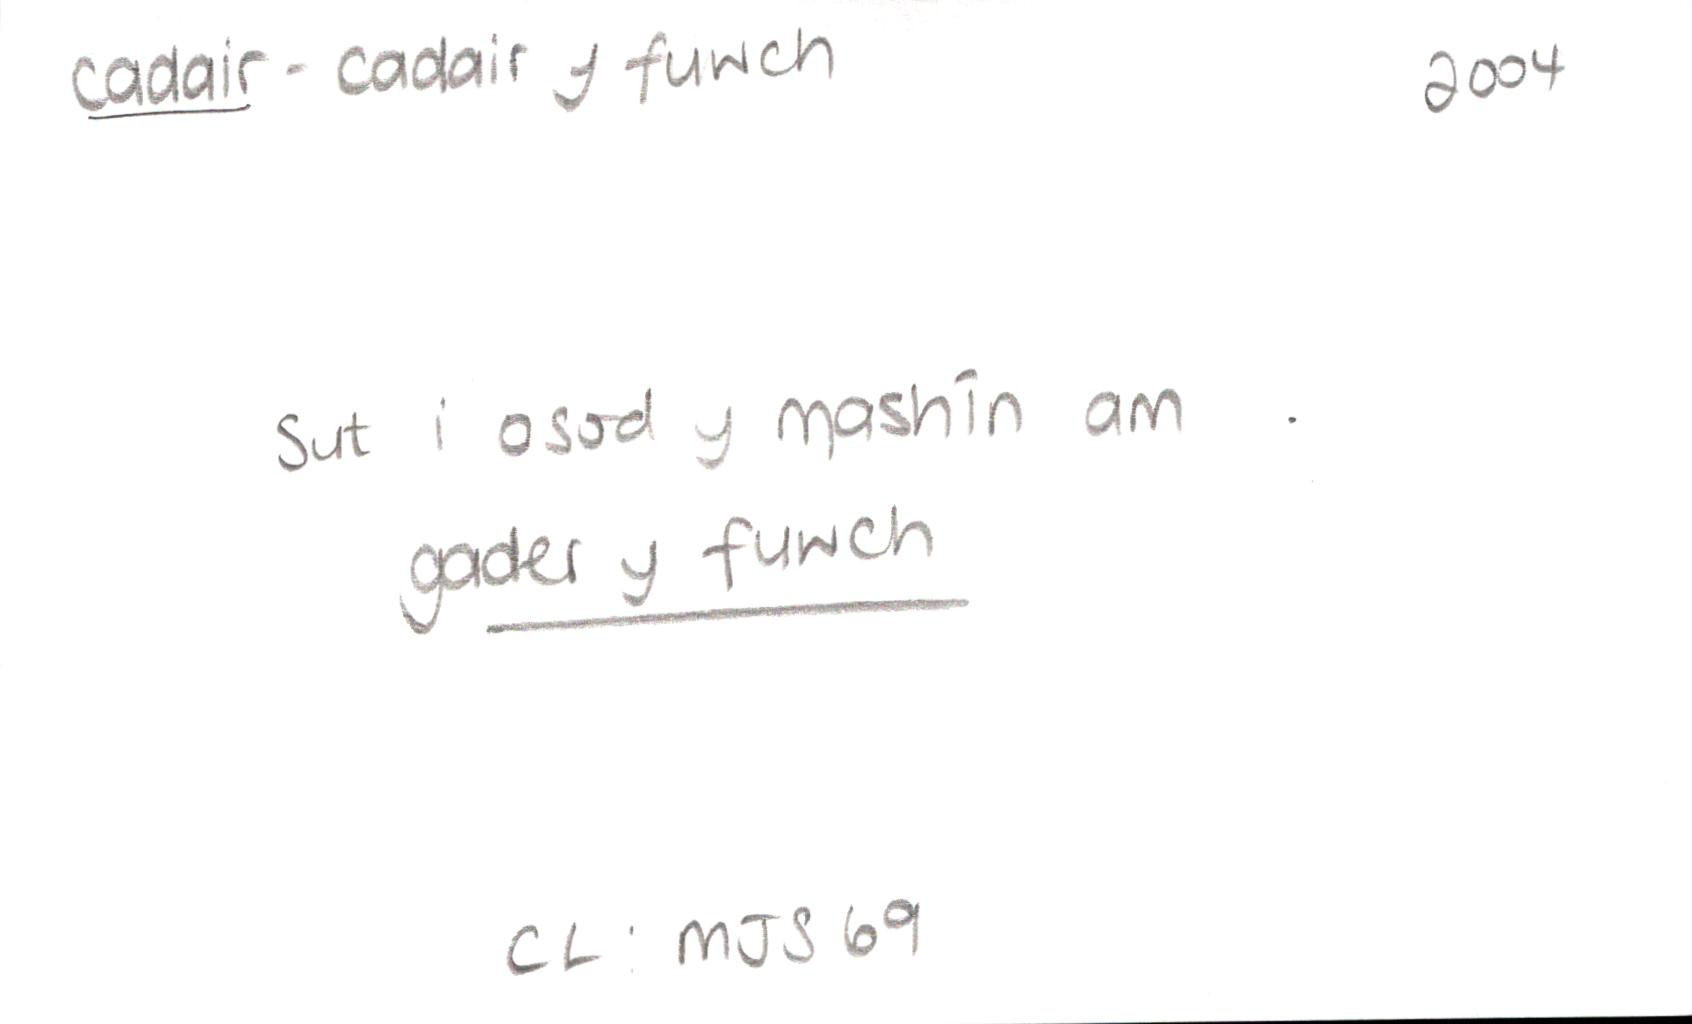 cadair - cadair y fuwch 2004
Sut i osod y mashîn am
gader y fuwch
CL: MJS 69